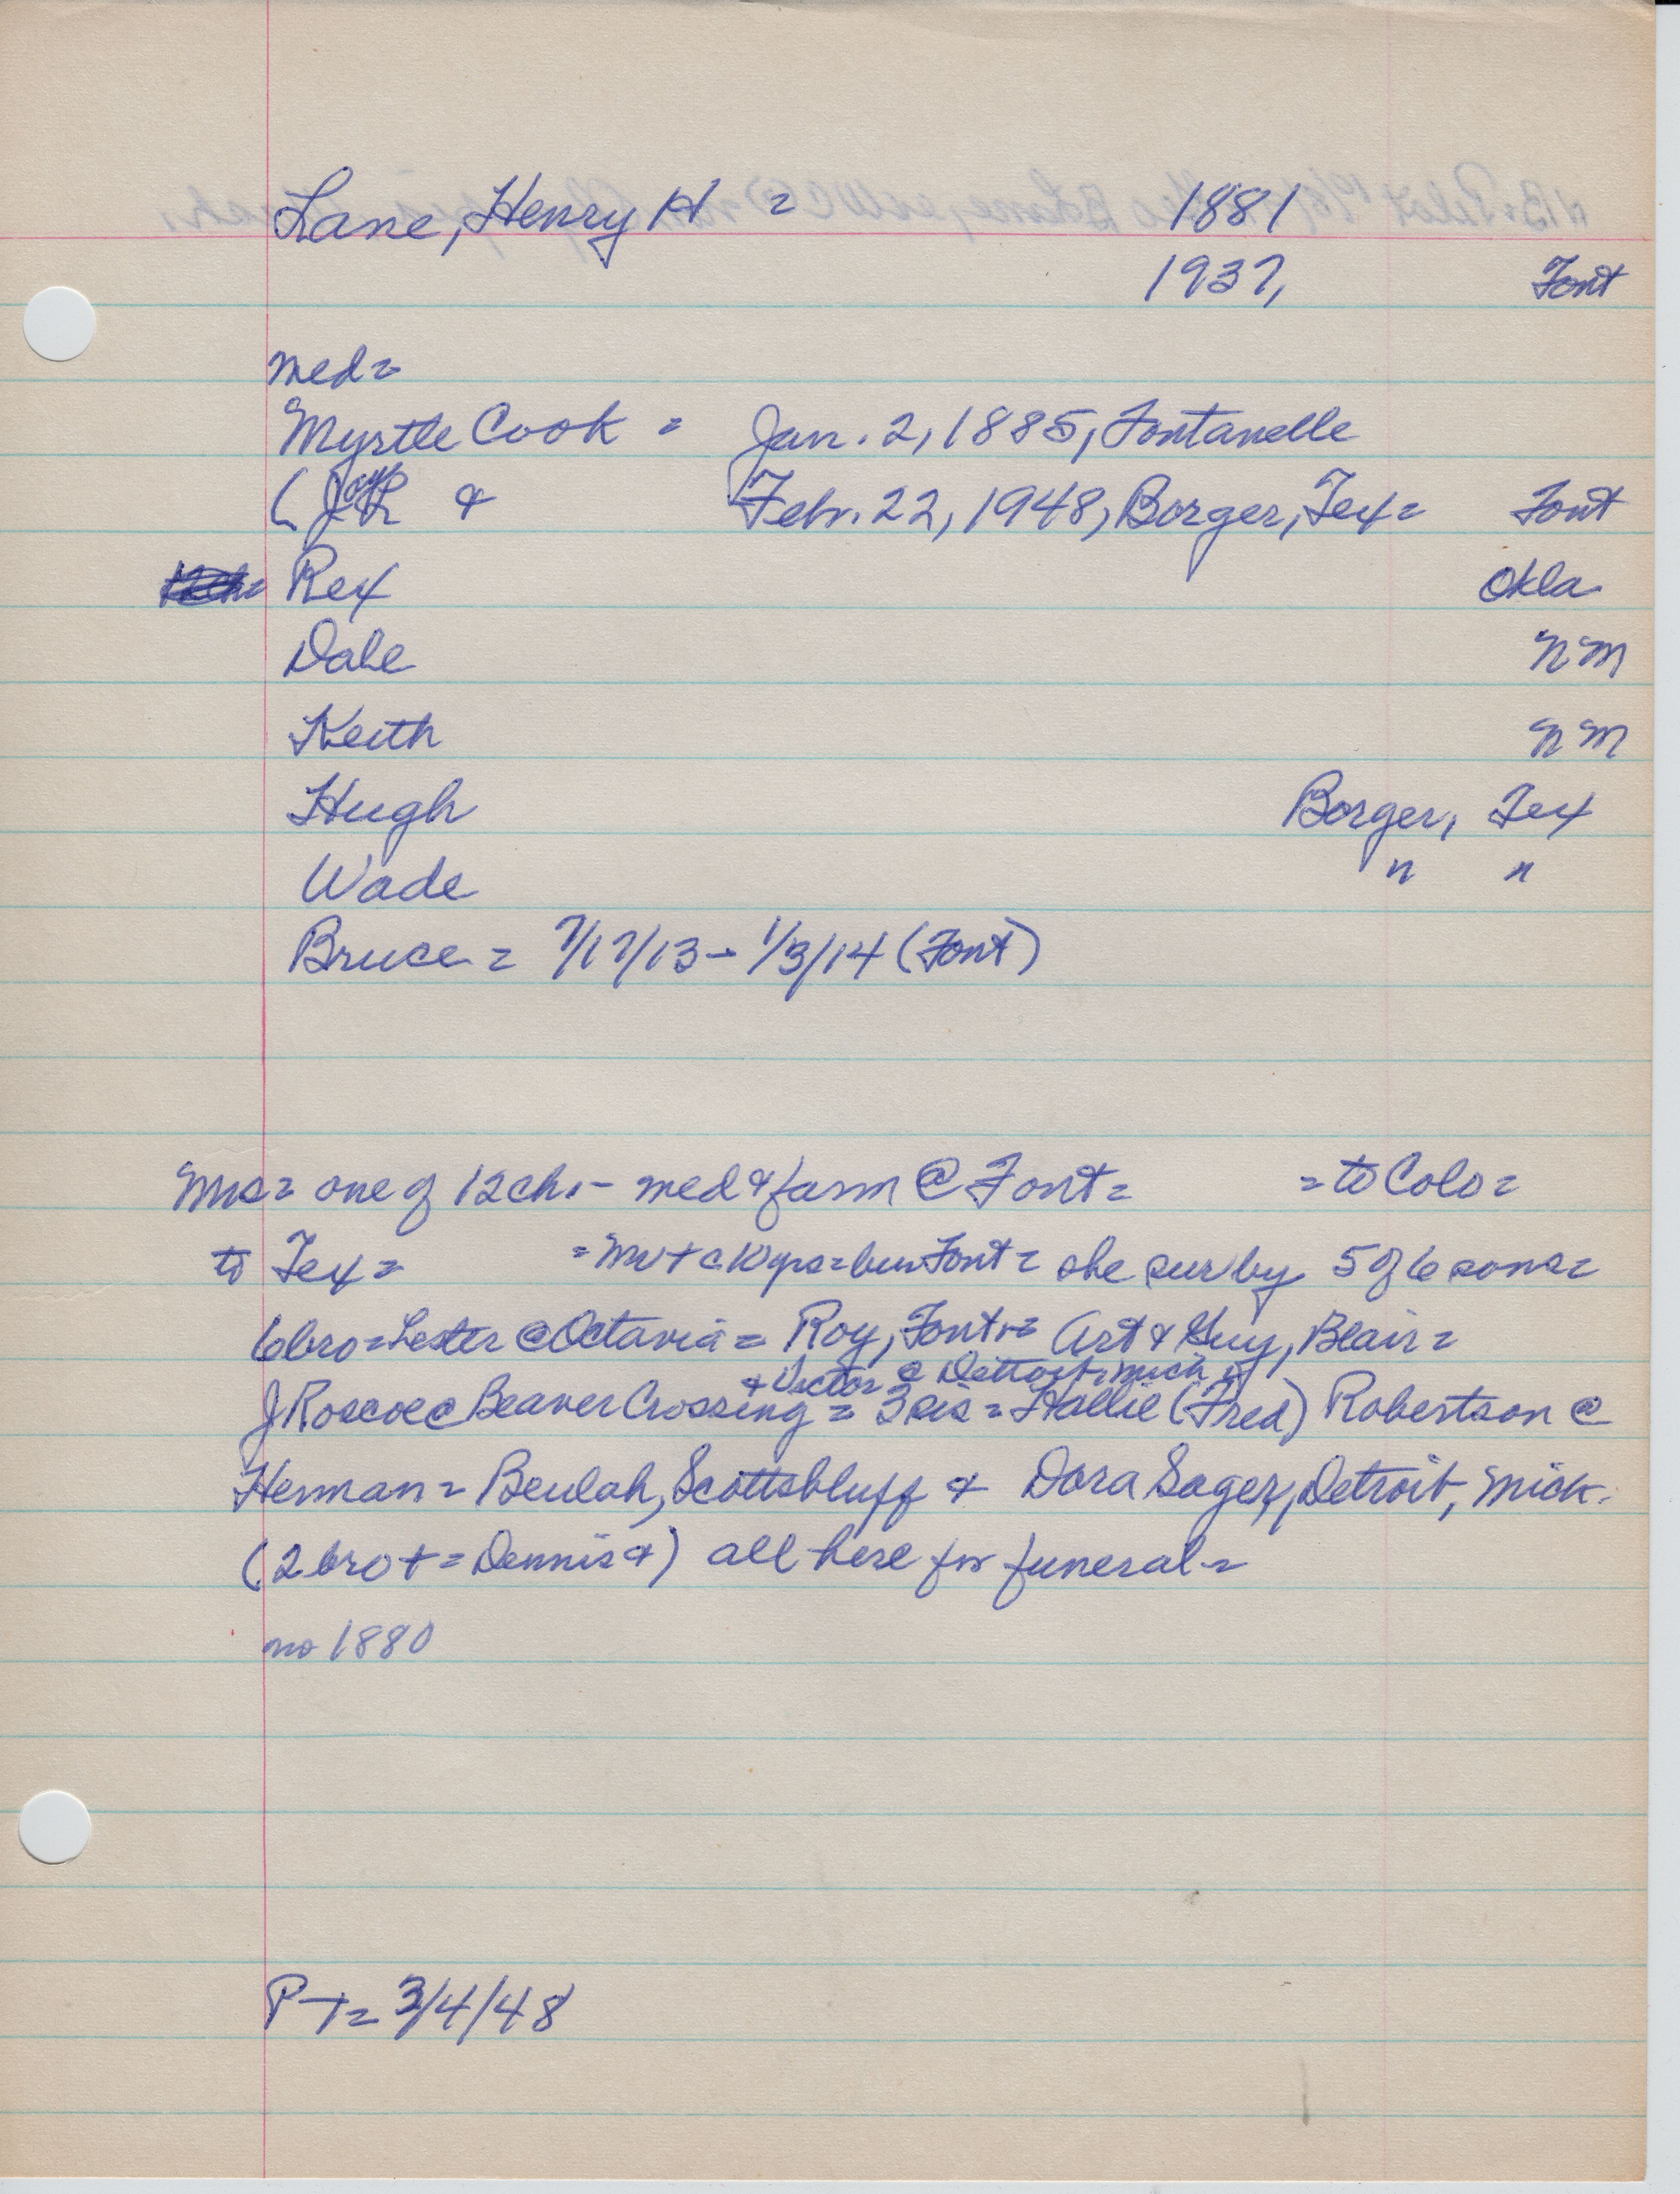 Lane, Henry H = 1881
1937, Font
med=
Myrtle Cook = Jan. 2, 1885, Fontanelle
( & Febr. 22, 1948, Borger, Tex= Font
Rex Okla
Dale N M
Keith N M
Hugh Borger, Tex
Wade " "
Bruce = 7/17/13 - 1/3/14 (Font)
Mrs= one of 12 ch. - med & farm @ Font= = to Colo=
to Tex= = Mr + c 10 yrs = bur Font= she sur by 5 of 6 sons=
6 bro = Lester @ Octavia = Roy, Font = Art & Guy, Blair=
& Victor @ Dettroit, Mich
J Roscoe @ Beaver Crossing = 3 sis = Hallie (Fred) Robertson @
Herman = Beulah, Scottsbluff & Dora Sager, Detroit, Mich.
(2 bro + = Dennis &) all here for funeral=
no 1880
P T= 3/4/48